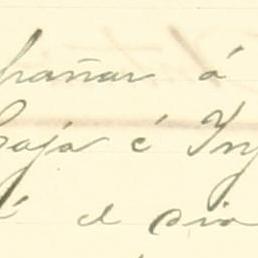 pañar á
Caja é Ing
el dia